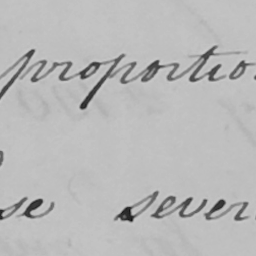 proportio
se sever